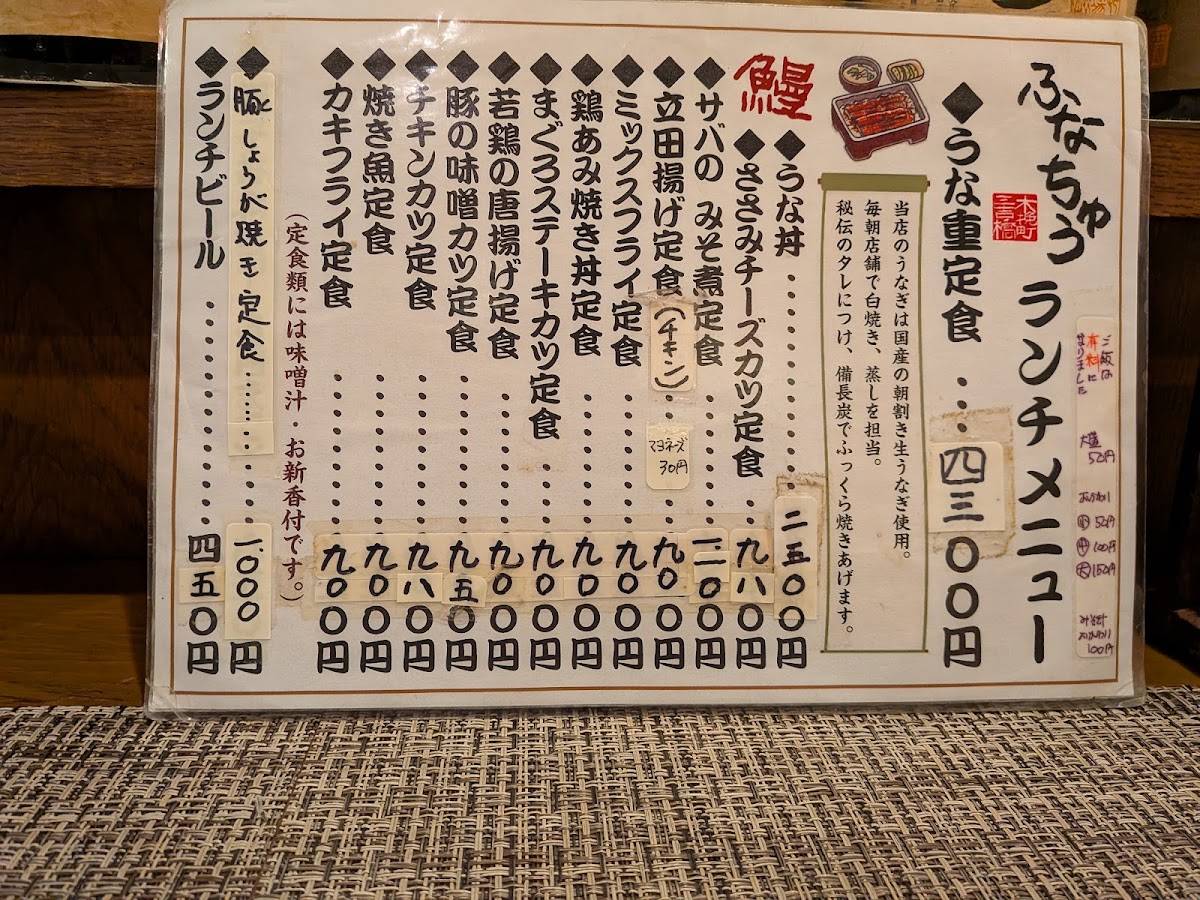 ご飯は
有料に
なりました
大盛
50円
おかわり
小 50円
中 100円
大 150円
みそ汁
おかわり
100円
ふなちゅう ランチメニュー
◆うな重定食……四三〇〇円
当店のうなぎは国産の朝割き生うなぎ使用。
毎朝店舗で白焼き、蒸しを担当。
秘伝のタレにつけ、備長炭でふっくら焼きあげます。
鰻
◆うな丼……二五〇〇円
◆ささみチーズカツ定食……九八〇円
◆サバのみそ煮定食……一一〇〇円
◆立田揚げ定食(チキン)……九〇〇円
マヨネーズ
30円
◆ミックスフライ定食……九〇〇円
◆鶏あみ焼き丼定食……九〇〇円
◆まぐろステーキカツ定食……九〇〇円
◆若鶏の唐揚げ定食……九〇〇円
◆豚の味噌カツ定食……九五〇円
◆チキンカツ定食……九八〇円
◆焼き魚定食……九〇〇円
◆カキフライ定食……九〇〇円
(定食類には味噌汁・お新香付です。)
◆豚しょうが焼き定食……一、〇〇〇円
◆ランチビール……四五〇円